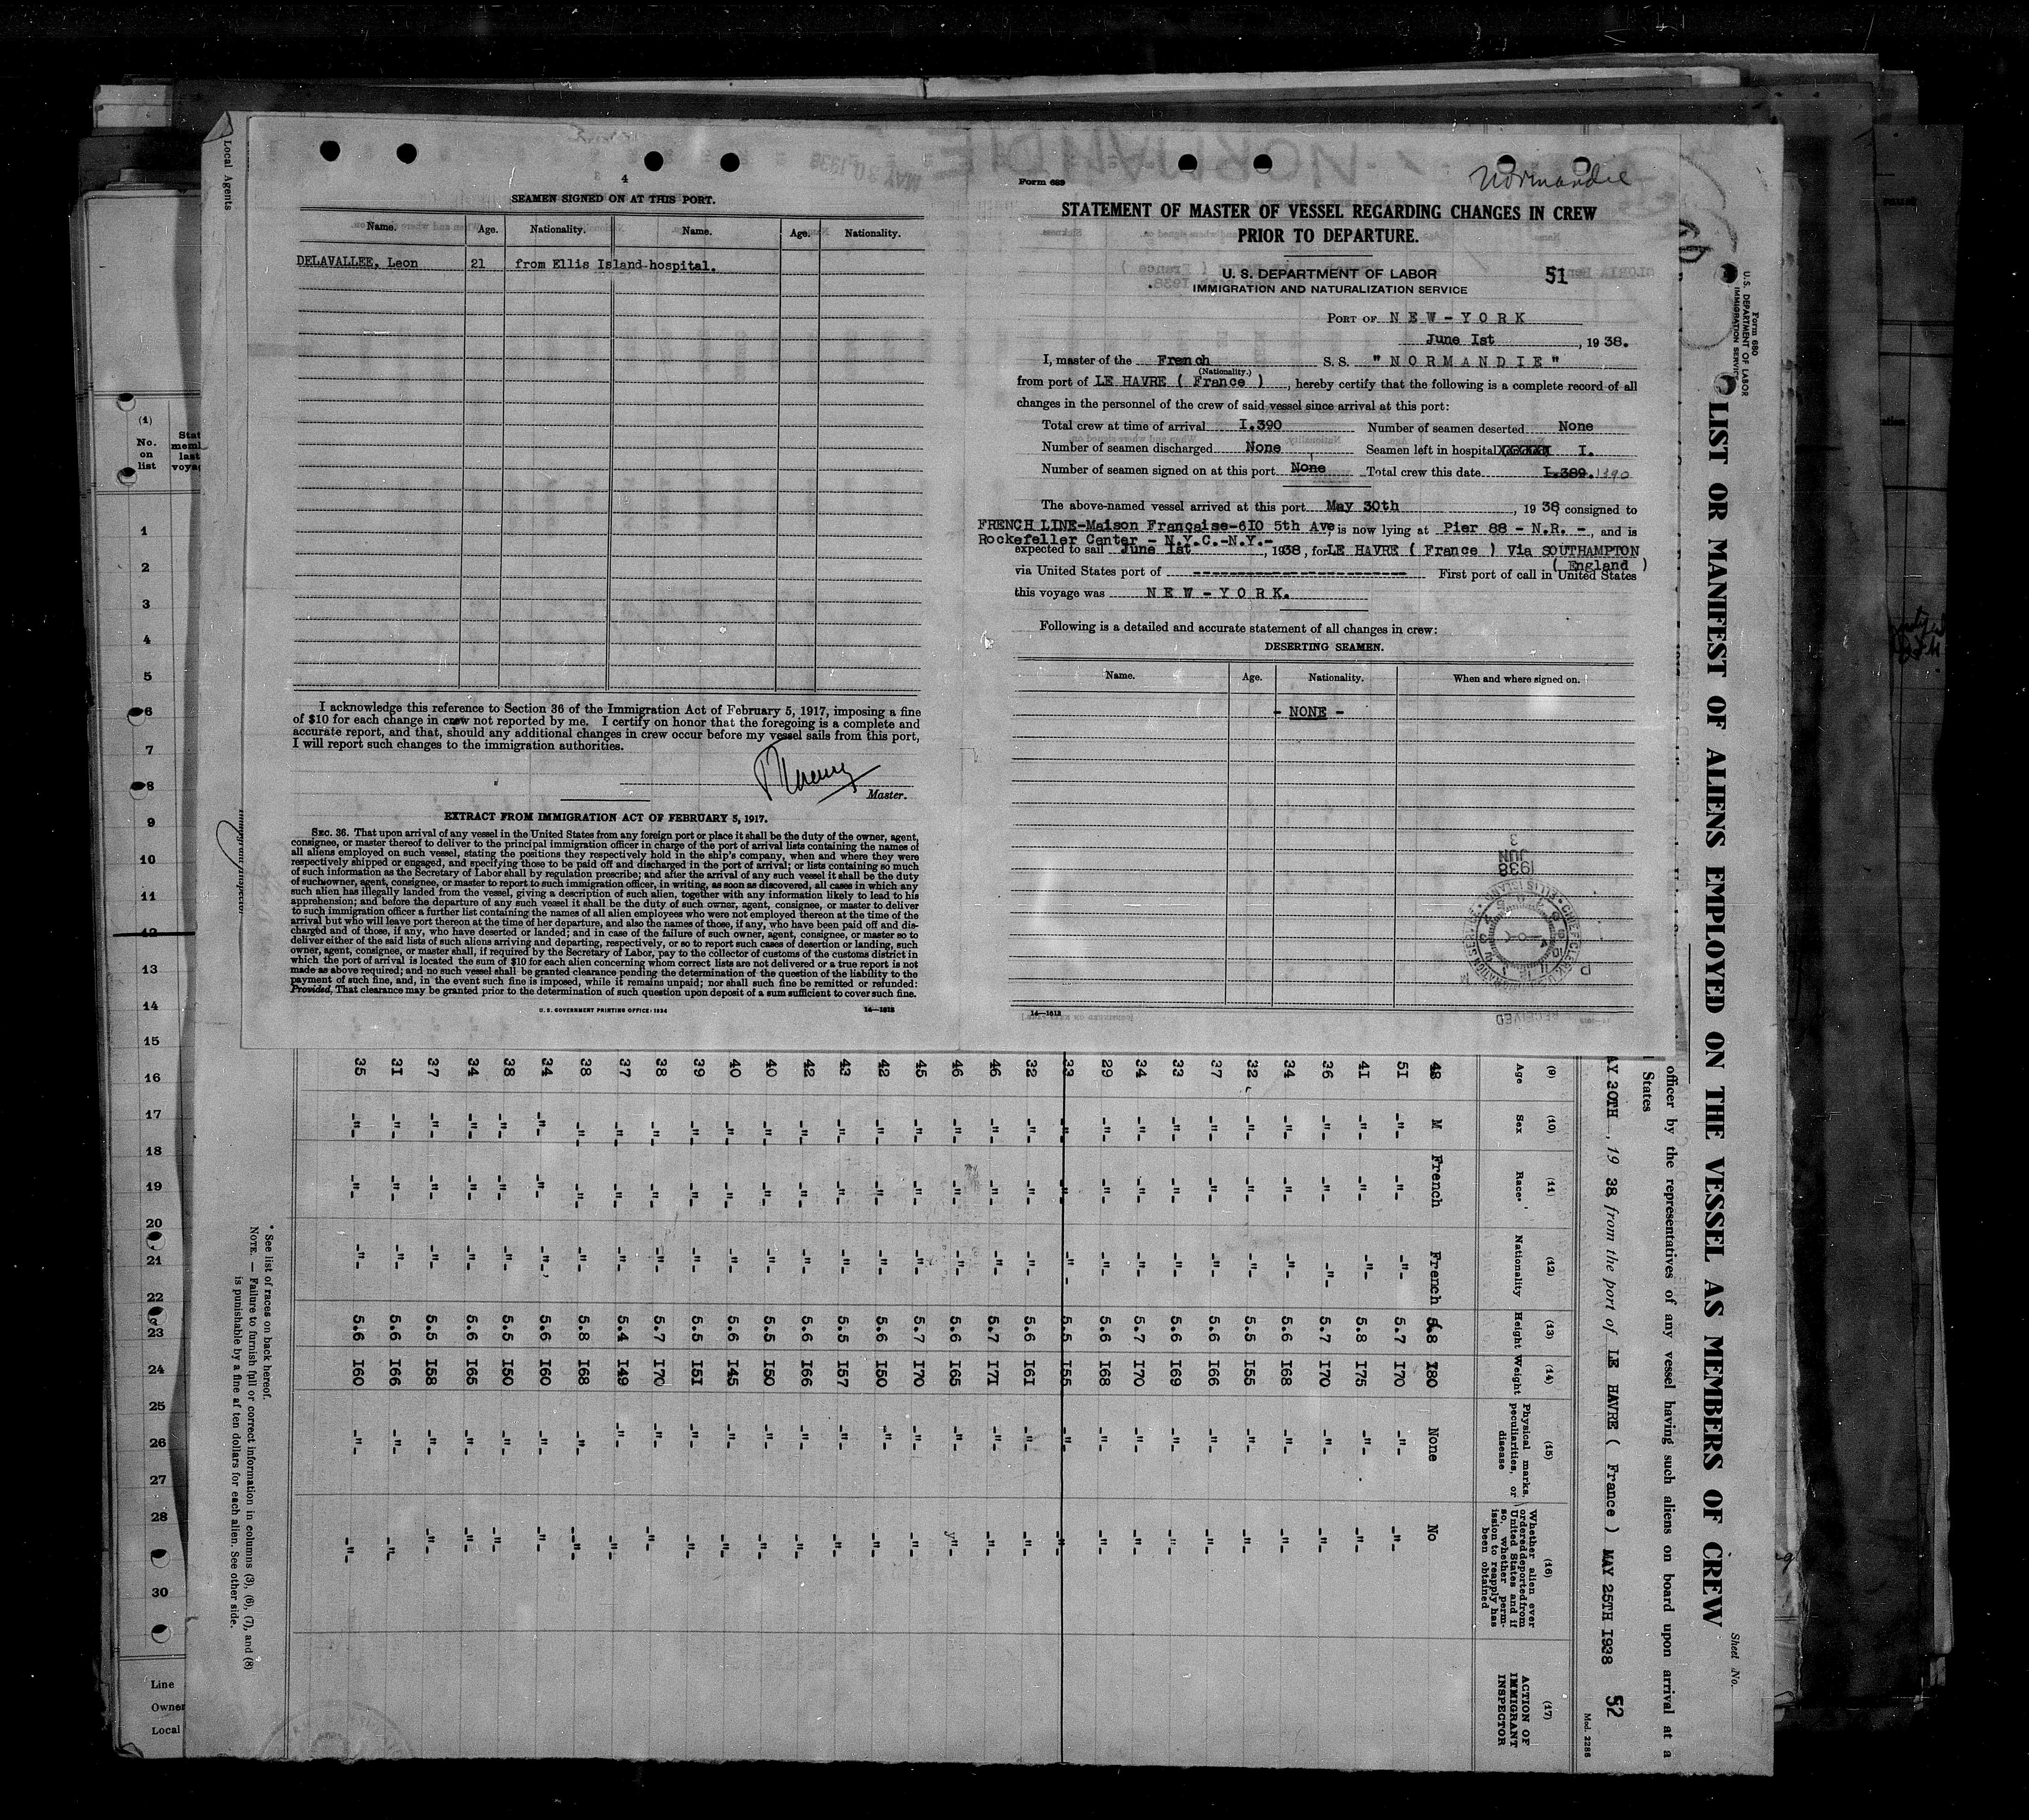 4
SEAMEN SIGNED ON AT THIS PORT.
Name. Age. Nationality. Name. Age. Nationality.
DELAVALLEE, Leon 21 from Ellis Island hospital.
I acknowledge this reference to Section 36 of the Immigration Act of February 5, 1917, imposing a fine
of $10 for each change in crew not reported by me. I certify on honor that the foregoing is a complete and
accurate report, and that, should any additional changes in crew occur before my vessel sails from this port,
I will report such changes to the immigration authorities.
Master.
EXTRACT FROM IMMIGRATION ACT OF FEBRUARY 5, 1917.
SEC. 36. That upon arrival of any vessel in the United States from any foreign port or place it shall be the duty of the owner, agent,
consignee, or master thereof to deliver to the principal immigration officer in charge of the port of arrival lists containing the names of
all aliens employed on such vessel, stating the positions they respectively hold in the ship's company, when and where they were
respectively shipped or engaged, and specifying those to be paid off and discharged in the port of arrival; or lists containing so much
of such information as the Secretary of Labor shall by regulation prescribe; and after the arrival of any such vessel it shall be the duty
of such owner, agent, consignee, or master to report to such immigration officer, in writing, as soon as discovered, all cases in which any
such alien has illegally landed from the vessel, giving a description of such alien, together with any information likely to lead to his
apprehension; and before the departure of any such vessel it shall be the duty of such owner, agent, consignee, or master to deliver
to such immigration officer a further list containing the names of all alien employees who were not employed thereon at the time of the
arrival but who will leave port thereon at the time of her departure, and also the names of those, if any, who have been paid off and dis-
charged and of those, if any, who have deserted or landed; and in case of the failure of such owner, agent, consignee, or master so to
deliver either of the said lists of such aliens arriving and departing, respectively, or so to report such cases of desertion or landing, such
owner, agent, consignee, or master shall, if required by the Secretary of Labor, pay to the collector of customs of the customs district in
which the port of arrival is located the sum of $10 for each alien concerning whom correct lists are not delivered or a true report is not
made as above required; and no such vessel shall be granted clearance pending the determination of the question of the liability to the
payment of such fine, and, in the event such fine is imposed, while it remains unpaid; nor shall such fine be remitted or refunded:
Provided, That clearance may be granted prior to the determination of such question upon deposit of a sum sufficient to cover such fine.
U. S. GOVERNMENT PRINTING OFFICE: 1934 14—1612
Form 689
Normandie
STATEMENT OF MASTER OF VESSEL REGARDING CHANGES IN CREW
PRIOR TO DEPARTURE.
U. S. DEPARTMENT OF LABOR
IMMIGRATION AND NATURALIZATION SERVICE
51
PORT OF NEW-YORK
June Ist, 1938.
I, master of the French S. S. "NORMANDIE"
(Nationality.)
from port of LE HAVRE ( France ), hereby certify that the following is a complete record of all
changes in the personnel of the crew of said vessel since arrival at this port:
Total crew at time of arrival I.390 Number of seamen deserted None
Number of seamen discharged None Seamen left in hospital XXXXXX I.
Number of seamen signed on at this port None Total crew this date I.389. 1390
The above-named vessel arrived at this port May 30th, 1938, consigned to
FRENCH LINE-Maison Française-6I0 5th Ave, is now lying at Pier 88 - N.R. -, and is
Rockefeller Center - N.Y.C.-N.Y.-
expected to sail June Ist, 1938, for LE HAVRE ( France ) Via SOUTHAMPTON
( England )
via United States port of ------------------------ First port of call in United States
this voyage was NEW-YORK.
Following is a detailed and accurate statement of all changes in crew:
DESERTING SEAMEN.
Name. Age. Nationality. When and where signed on.
- NONE -
1938
JUN
3
RECEIVED
14—1612
Local Agents
Immigrant Inspector
Form 680
U.S. DEPARTMENT OF LABOR
IMMIGRATION SERVICE
LIST OR MANIFEST OF ALIENS EMPLOYED ON THE VESSEL AS MEMBERS OF CREW
Sheet No.
officer by the representatives of any vessel having such aliens on board upon arrival at a
States
AY 30TH, 1938, from the port of LE HAVRE ( France ) MAY 25TH I938 52
Mod. 2286
(9) (10) (11) (12) (13) (14) (15) (16) (17)
Age Sex Race* Nationality Height Weight Physical marks, peculiarities, or disease Whether alien ever ordered deported from United States and if so, whether permission to reapply has been obtained ACTION OF IMMIGRANT INSPECTOR
48 M French French 5.8 I80 None No
5I -"- -"- -"- 5.7 I70 -"- -"-
4I -"- -"- -"- 5.8 I75 -"- -"-
36 -"- -"- -"- 5.7 I70 -"- -"-
34 -"- -"- -"- 5.6 I68 -"- -"-
32 -"- -"- -"- 5.5 I55 -"- -"-
37 -"- -"- -"- 5.6 I66 -"- -"-
33 -"- -"- -"- 5.6 I69 -"- -"-
34 -"- -"- -"- 5.7 I70 -"- -"-
29 -"- -"- -"- 5.6 I68 -"- -"-
33 -"- -"- -"- 5.5 I55 -"- -"-
32 -"- -"- -"- 5.6 I6I -"- -"-
46 -"- -"- -"- 5.7 I7I -"- -"-
46 -"- -"- -"- 5.6 I65 -"- -"-
45 -"- -"- -"- 5.7 I70 -"- -"-
42 -"- -"- -"- 5.6 I50 -"- -"-
43 -"- -"- -"- 5.5 I57 -"- -"-
42 -"- -"- -"- 5.6 I66 -"- -"-
40 -"- -"- -"- 5.5 I50 -"- -"-
40 -"- -"- -"- 5.6 I45 -"- -"-
39 -"- -"- -"- 5.5 I5I -"- -"-
38 -"- -"- -"- 5.7 I70 -"- -"-
37 -"- -"- -"- 5.4 I49 -"- -"-
38 -"- -"- -"- 5.8 I68 -"- -"-
34 -"- -"- -"- 5.6 I60 -"- -"-
38 -"- -"- -"- 5.5 I50 -"- -"-
34 -"- -"- -"- 5.6 I65 -"- -"-
37 -"- -"- -"- 5.5 I58 -"- -"-
3I -"- -"- -"- 5.6 I66 -"- -"-
35 -"- -"- -"- 5.6 I60 -"- -"-
* See list of races on back hereof.
NOTE. — Failure to furnish full or correct information in columns (3), (6), (7), and (8)
is punishable by a fine af ten dollars for each alien. See other side.
(1)
No.
on
list
1
2
3
4
5
6
7
8
9
10
11
12
13
14
15
16
17
18
19
20
21
22
23
24
25
26
27
28
30
Line
Owner
Local